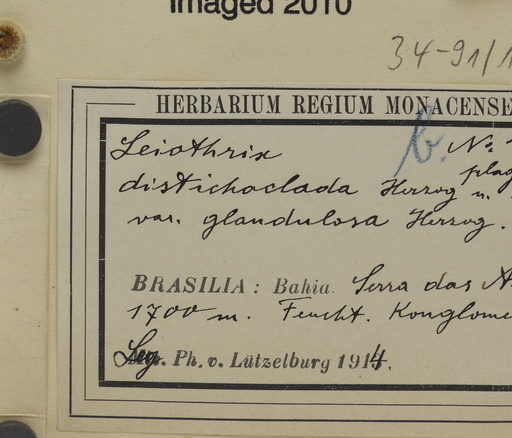 Imaged 2010
34-91/1
HERBARIUM REGIUM MONACENSE
Leiothrix b. No.
distichoclada Herzog n.
var. glandulosa Herzog.
BRASILIA: Bahia. Serra das
1700 m. Feucht.
Leg. Ph. v. Lützelburg 1914.